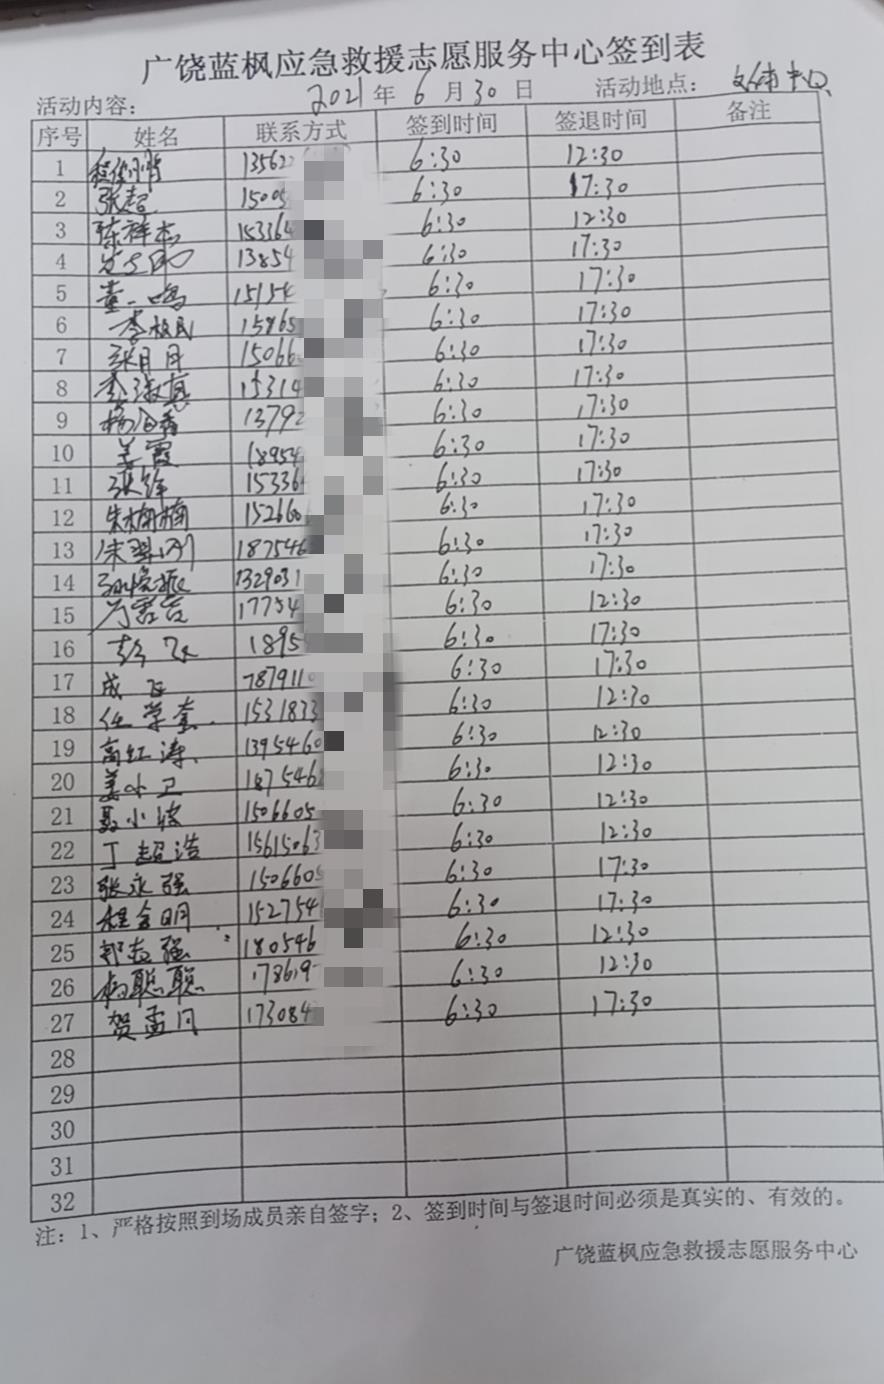 广饶蓝枫应急救援志愿服务中心签到表
活动内容： 2021 年 6 月 30 日 活动地点： 文体中心
序号 姓名 联系方式 签到时间 签退时间 备注
1 13562 6:30 12:30
2 张超 15005 6:30 17:30
3 陈祥杰 153364 6:30 12:30
4 13854 6:30 17:30
5 董一鸣 15154 6:30 17:30
6 李极民 15865 6:30 17:30
7 张月月 15066 6:30 17:30
8 李淑真 15314 6:30 17:30
9 杨海香 13792 6:30 17:30
10 姜霞 18954 6:30 17:30
11 张锋 15336 6:30 17:30
12 朱楠楠 152660 6:30 17:30
13 187546 6:30 17:30
14 1329031 6:30 17:30
15 17754 6:30 12:30
16 彭飞 1895 6:30 17:30
17 成飞 787911 6:30 17:30
18 任学奎 1531833 6:30 12:30
19 高红涛 1395460 6:30 12:30
20 姜小卫 187546 6:30 12:30
21 聂小波 1506605 6:30 12:30
22 丁超浩 1561506 6:30 12:30
23 张永强 150660 6:30 17:30
24 程金明 152754 6:30 17:30
25 郭志强 180546 6:30 12:30
26 杨聪聪 17861 6:30 12:30
27 贺孟月 173084 6:30 17:30
28
29
30
31
32
注：1、严格按照到场成员亲自签字；2、签到时间与签退时间必须是真实的、有效的。
广饶蓝枫应急救援志愿服务中心